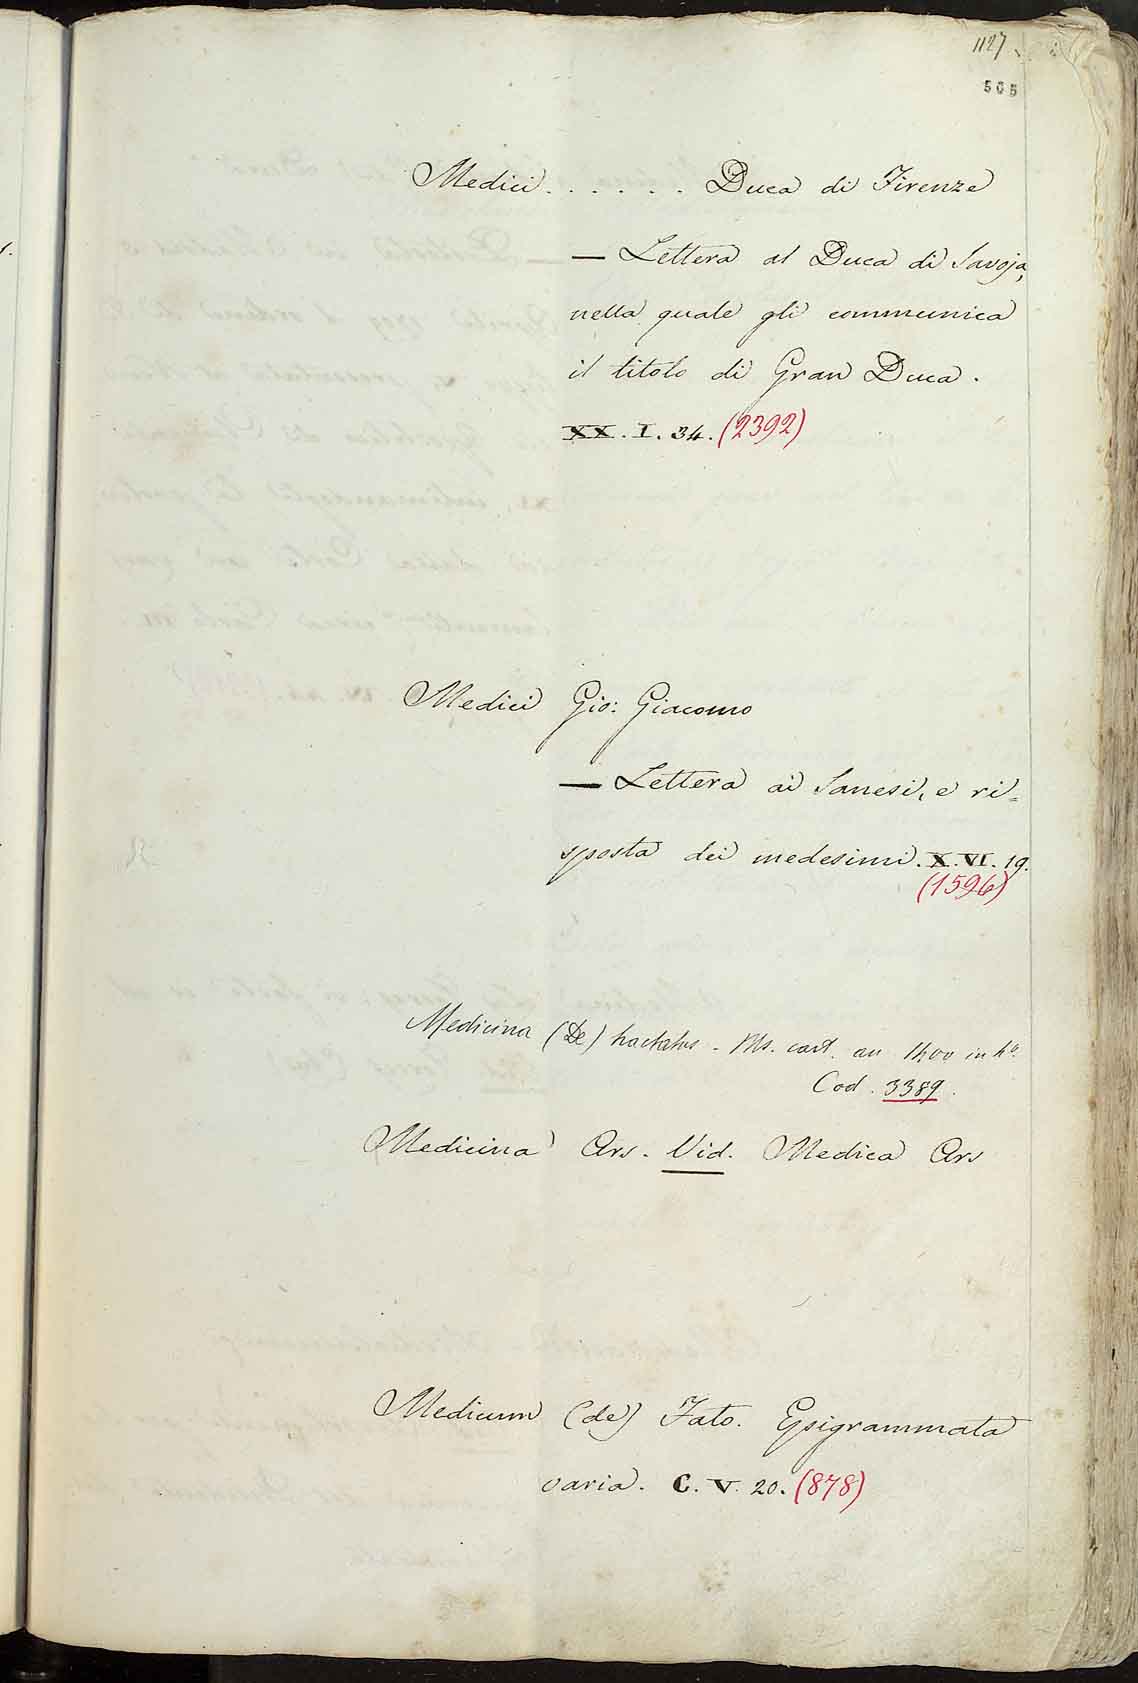 1127
505
Medici . . . . . . Duca di Firenze
— Lettera al Duca di Savoja,
nella quale gli communica
il titolo di Gran Duca.
XX. I. 34. (2392)
Medici Gio: Giacomo
— Lettera ai Sanesi, e ri=
sposta dei medesimi. X. VI. 19.
(1596)
Medicina (De) tractatus - Ms. cart. an 1400 in 4º.
Cod. 3389.
Medicina Ars. Vid. Medica Ars
Medicum (de) Fato. Epigrammata
varia. C. V. 20. (878)